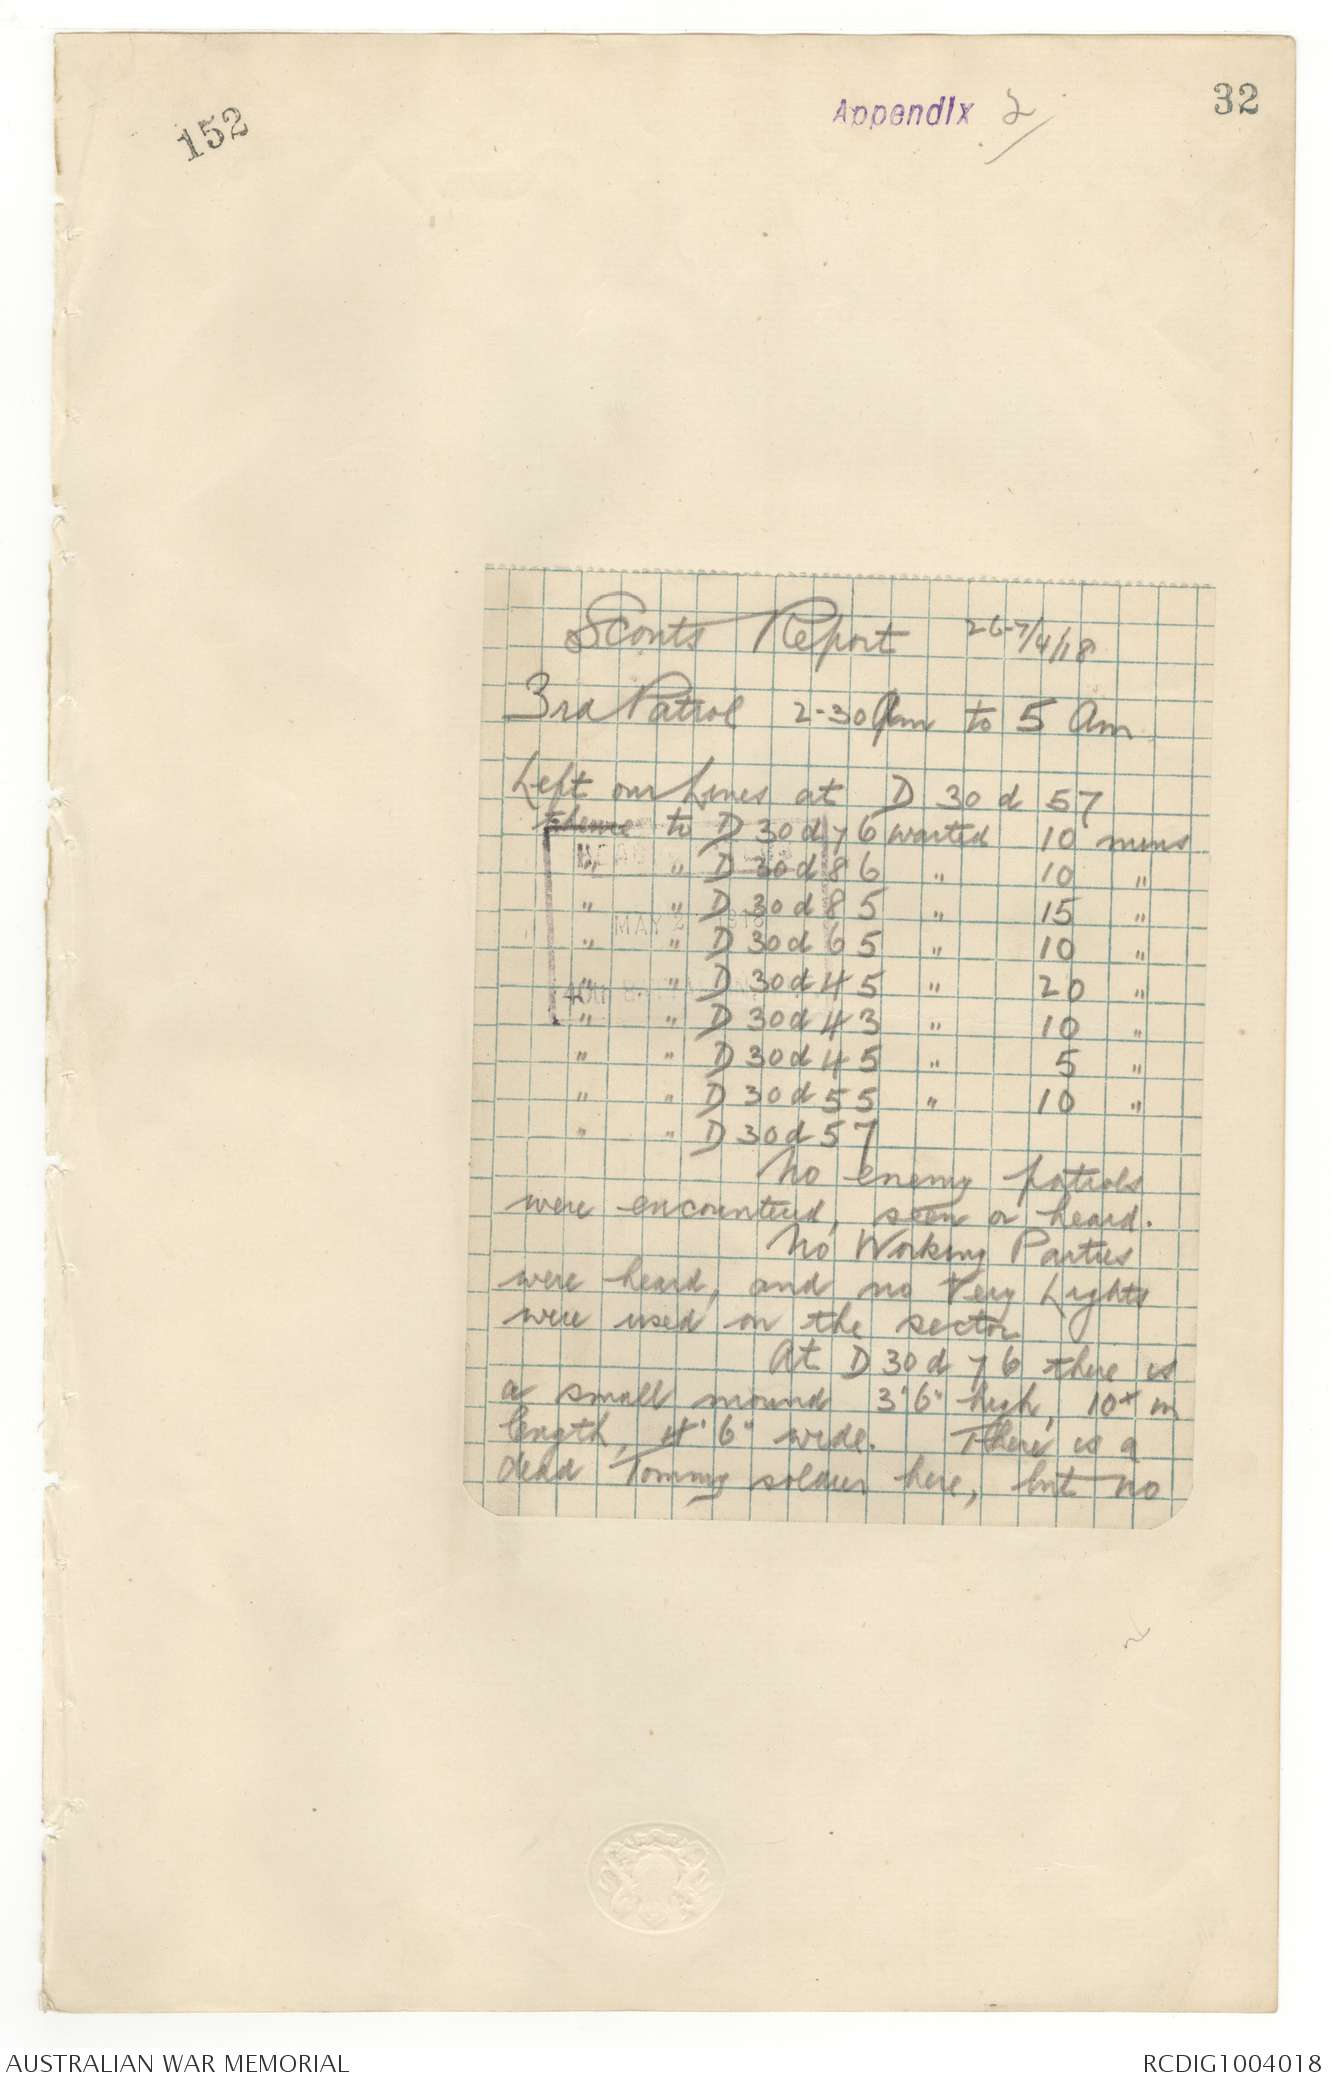 152
Appendix 2/
32
Scouts Report 26-7/4/18
3rd Patrol 2-30 Am to 5 Am
Left our Lines at D 30 d 57
thence to D 30 d 76 waited 10 mins
" " D 30 d 86 " 10 "
" " D 30 d 85 " 15 "
MAY 2 1918
" " D 30 d 65 " 10 "
" " D 30 d 45 " 20 "
" " D 30 d 43 " 10 "
" " D 30 d 45 " 5 "
" " D 30 d 55 " 10 "
" " D 30 d 57
No enemy patrols
were encountered, seen or heard.
No Working Parties
were heard, and no Very Lights
were used on the sector
At D 30 d 76 there is
a small mound 3'6" high, 10x in
length, 4'6" wide. There is a
dead Tommy soldier here, but no
AUSTRALIAN WAR MEMORIAL
RCDIG1004018